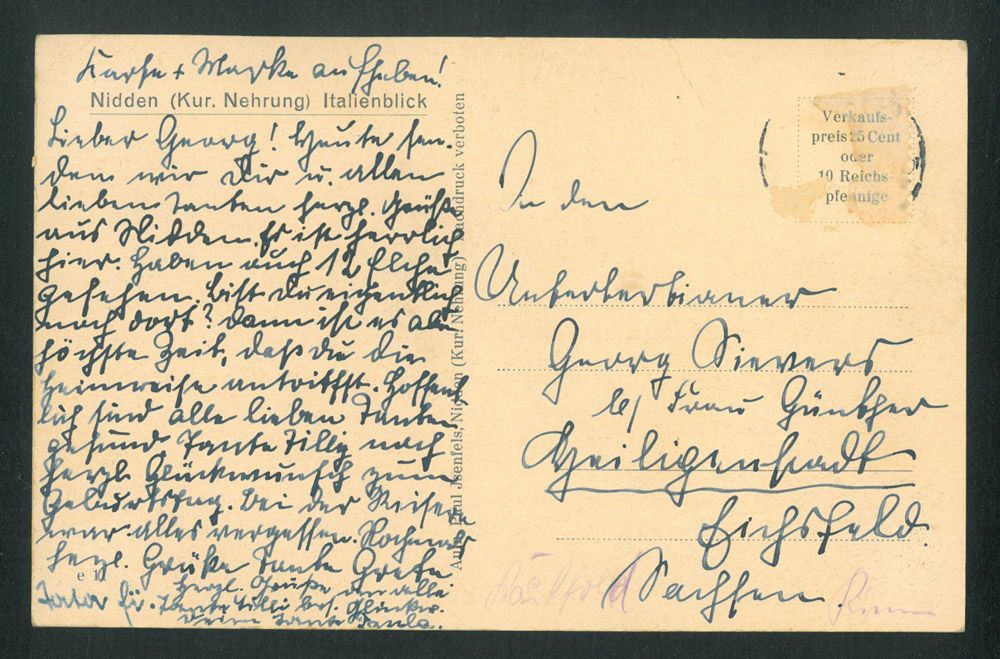 Karte + Marke aufheben!
Nidden (Kur. Nehrung) Italienblick
Lieber Georg! Heute sen-
den wir Dir u. allen
lieben Tanten herzl. Grüße
aus Nidden. Es ist herrlich
hier. Haben auch 12 Elche
gesehen. Bist du eigentlich
noch dort? Dann ist es aller
höchste Zeit, daß du die
Heimreise antrittst. Hoffent-
lich sind alle lieben Tanten
gesund. Tante Tilly noch
herzl. Glückwunsch zum
Geburtstag. Bei der Reiserei
war alles vergessen. Nochmals
herzl. Grüße Tante Grete.
e 1
Herzl. Grüße an alle
Tante Tilli bes. Glückw.
Deine Tante Paula.
Aufn. Paul Isenfels, Nidden (Kur. Nehrung) Nachdruck verboten
Verkaufs-
preis 25 Cent
oder
10 Reichs-
pfennige
An den
Untertertianer
Georg Sievers
b/ Frau Günther
Heiligenstadt
Eichsfeld.
Sachsen.